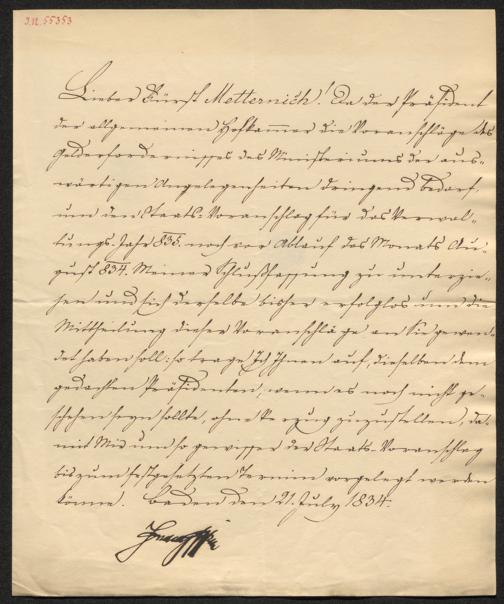 J.N. 55353
Lieber Fürst Metternich! Da der Präsident
der allgemeinen Hofkam̅er die Voranschläge des
Gelderfordernisses des Ministeriums der aus-
wärtigen Angelegenheiten dringend bedarf,
um den Staats-Voranschlag für das Verwal-
tungs-Jahr 835. noch vor Ablauf des Monats Au-
gust 834. Meiner Schlußfassung zu unterzie-
hen und sich derselbe bisher erfolglos um die
Mittheilung dieser Voranschläge an Sie gewen-
det haben soll: so trage Ich Ihnen auf, dieselben dem
gedachten Präsidenten, wenn es noch nicht ge-
schehen seyn sollte, ohne Verzug zuzustellen, da-
mit Mir um so gewisser der Staats-Voranschlag
bis zum festgesetzten Termin vorgelegt werden
könne. Baden den 21. July 1834.
Franz